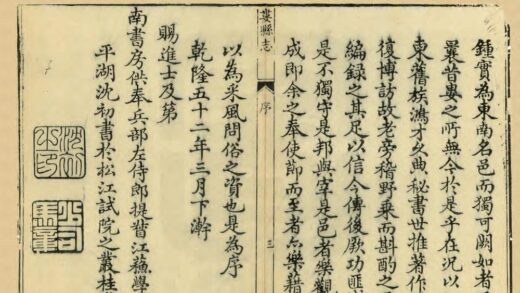 鍾實為東南名邑而獨可闕如者
曩昔婁之所無今於是乎在況以
東舊族鴻才文典秘書世推著作
復博訪故老旁稽野乘而斟酌之
編録之其足以信今傳後厥功匪
是不獨守是邦與宰是邑者樂觀
成即余之奉使莭而至者亦樂藉
婁縣志
序
三
以為采風問俗之資也是為序
乾隆五十二年三月下澣
賜進士及第
南書房供奉兵部左侍郎提督江蘇學
平湖沈初書於松江試院之叢桂